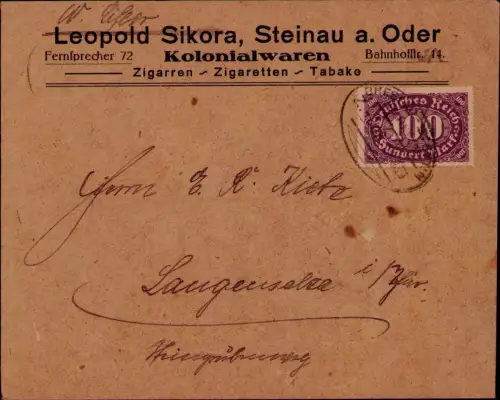 Leopold Sikora, Steinau a. Oder
Fernsprecher 72 Kolonialwaren Bahnhofstr. 14.
Zigarren – Zigaretten – Tabake
Deutsches Reich
100
Hundert Mark
Herrn E. R. Kietz
Langensalza i/Thür.